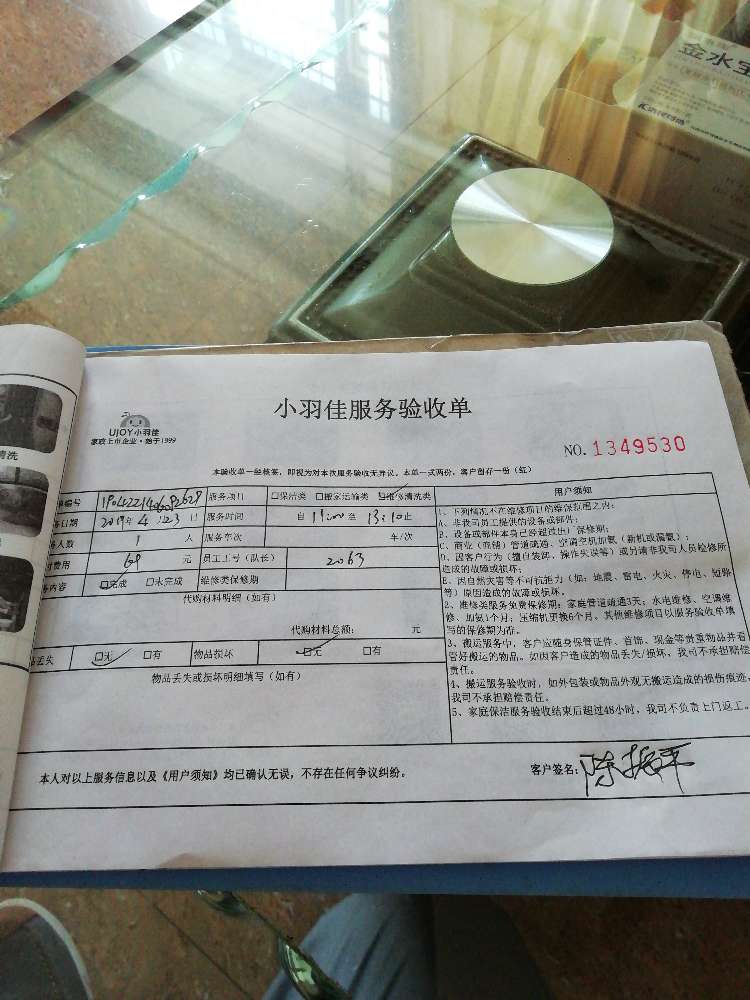 金水宝
清洗
UJOY小羽佳
家政上市企业·始于1999
小羽佳服务验收单
NO. 1349530
本验收单一经核签，即视为对本次服务验收无异议。本单一式两份，客户留存一份（红）
单编号
服务项目 □保洁类 □搬家运输类 ☑维修清洗类
务日期 2019年4月23日 服务时间 自 11:00 至 13:10 止
务人数 1 人 服务车次 车/次
费用 69 元 员工工号（队长） 2063
务内容 ☑完成 □未完成 维修类保修期
代购材料明细（如有）
代购材料总额： 元
品丢失 ☑无 □有 物品损坏 ☑无 □有
物品丢失或损坏明细填写（如有）
用户须知
1、下列情况不在维修项目的维保范围之内：
A、非我司员工提供的设备或部件；
B、设备或部件本身已经超过出厂保修期；
C、商业（商铺）管道疏通、空调空机加氨（新机或漏氨）；
D、因客户行为（擅自装卸，操作失误等）或另请非我司人员检修所
造成的故障或损坏。
E、因自然灾害等不可抗能力（如：地震、雷电、火灾、停电、短路
等）原因造成的故障或损坏。
2、维修类服务免费保修期：家庭管道疏通3天；水电维修、空调维
修、加氨1个月；压缩机更换6个月，其他维修项目以服务验收单填
写的保修期为准。
3、搬运服务中，客户应随身保管证件、首饰、现金等贵重物品并看
管好搬运的物品。如因客户造成的物品丢失/损坏，我司不承担赔偿
责任。
4、搬运服务验收时，如外包装或物品外观无搬运造成的损伤痕迹，
我司不承担赔偿责任。
5、家庭保洁服务验收结束后超过48小时，我司不负责上门返工。
本人对以上服务信息以及《用户须知》均已确认无误，不存在任何争议纠纷。
客户签名：陈振平